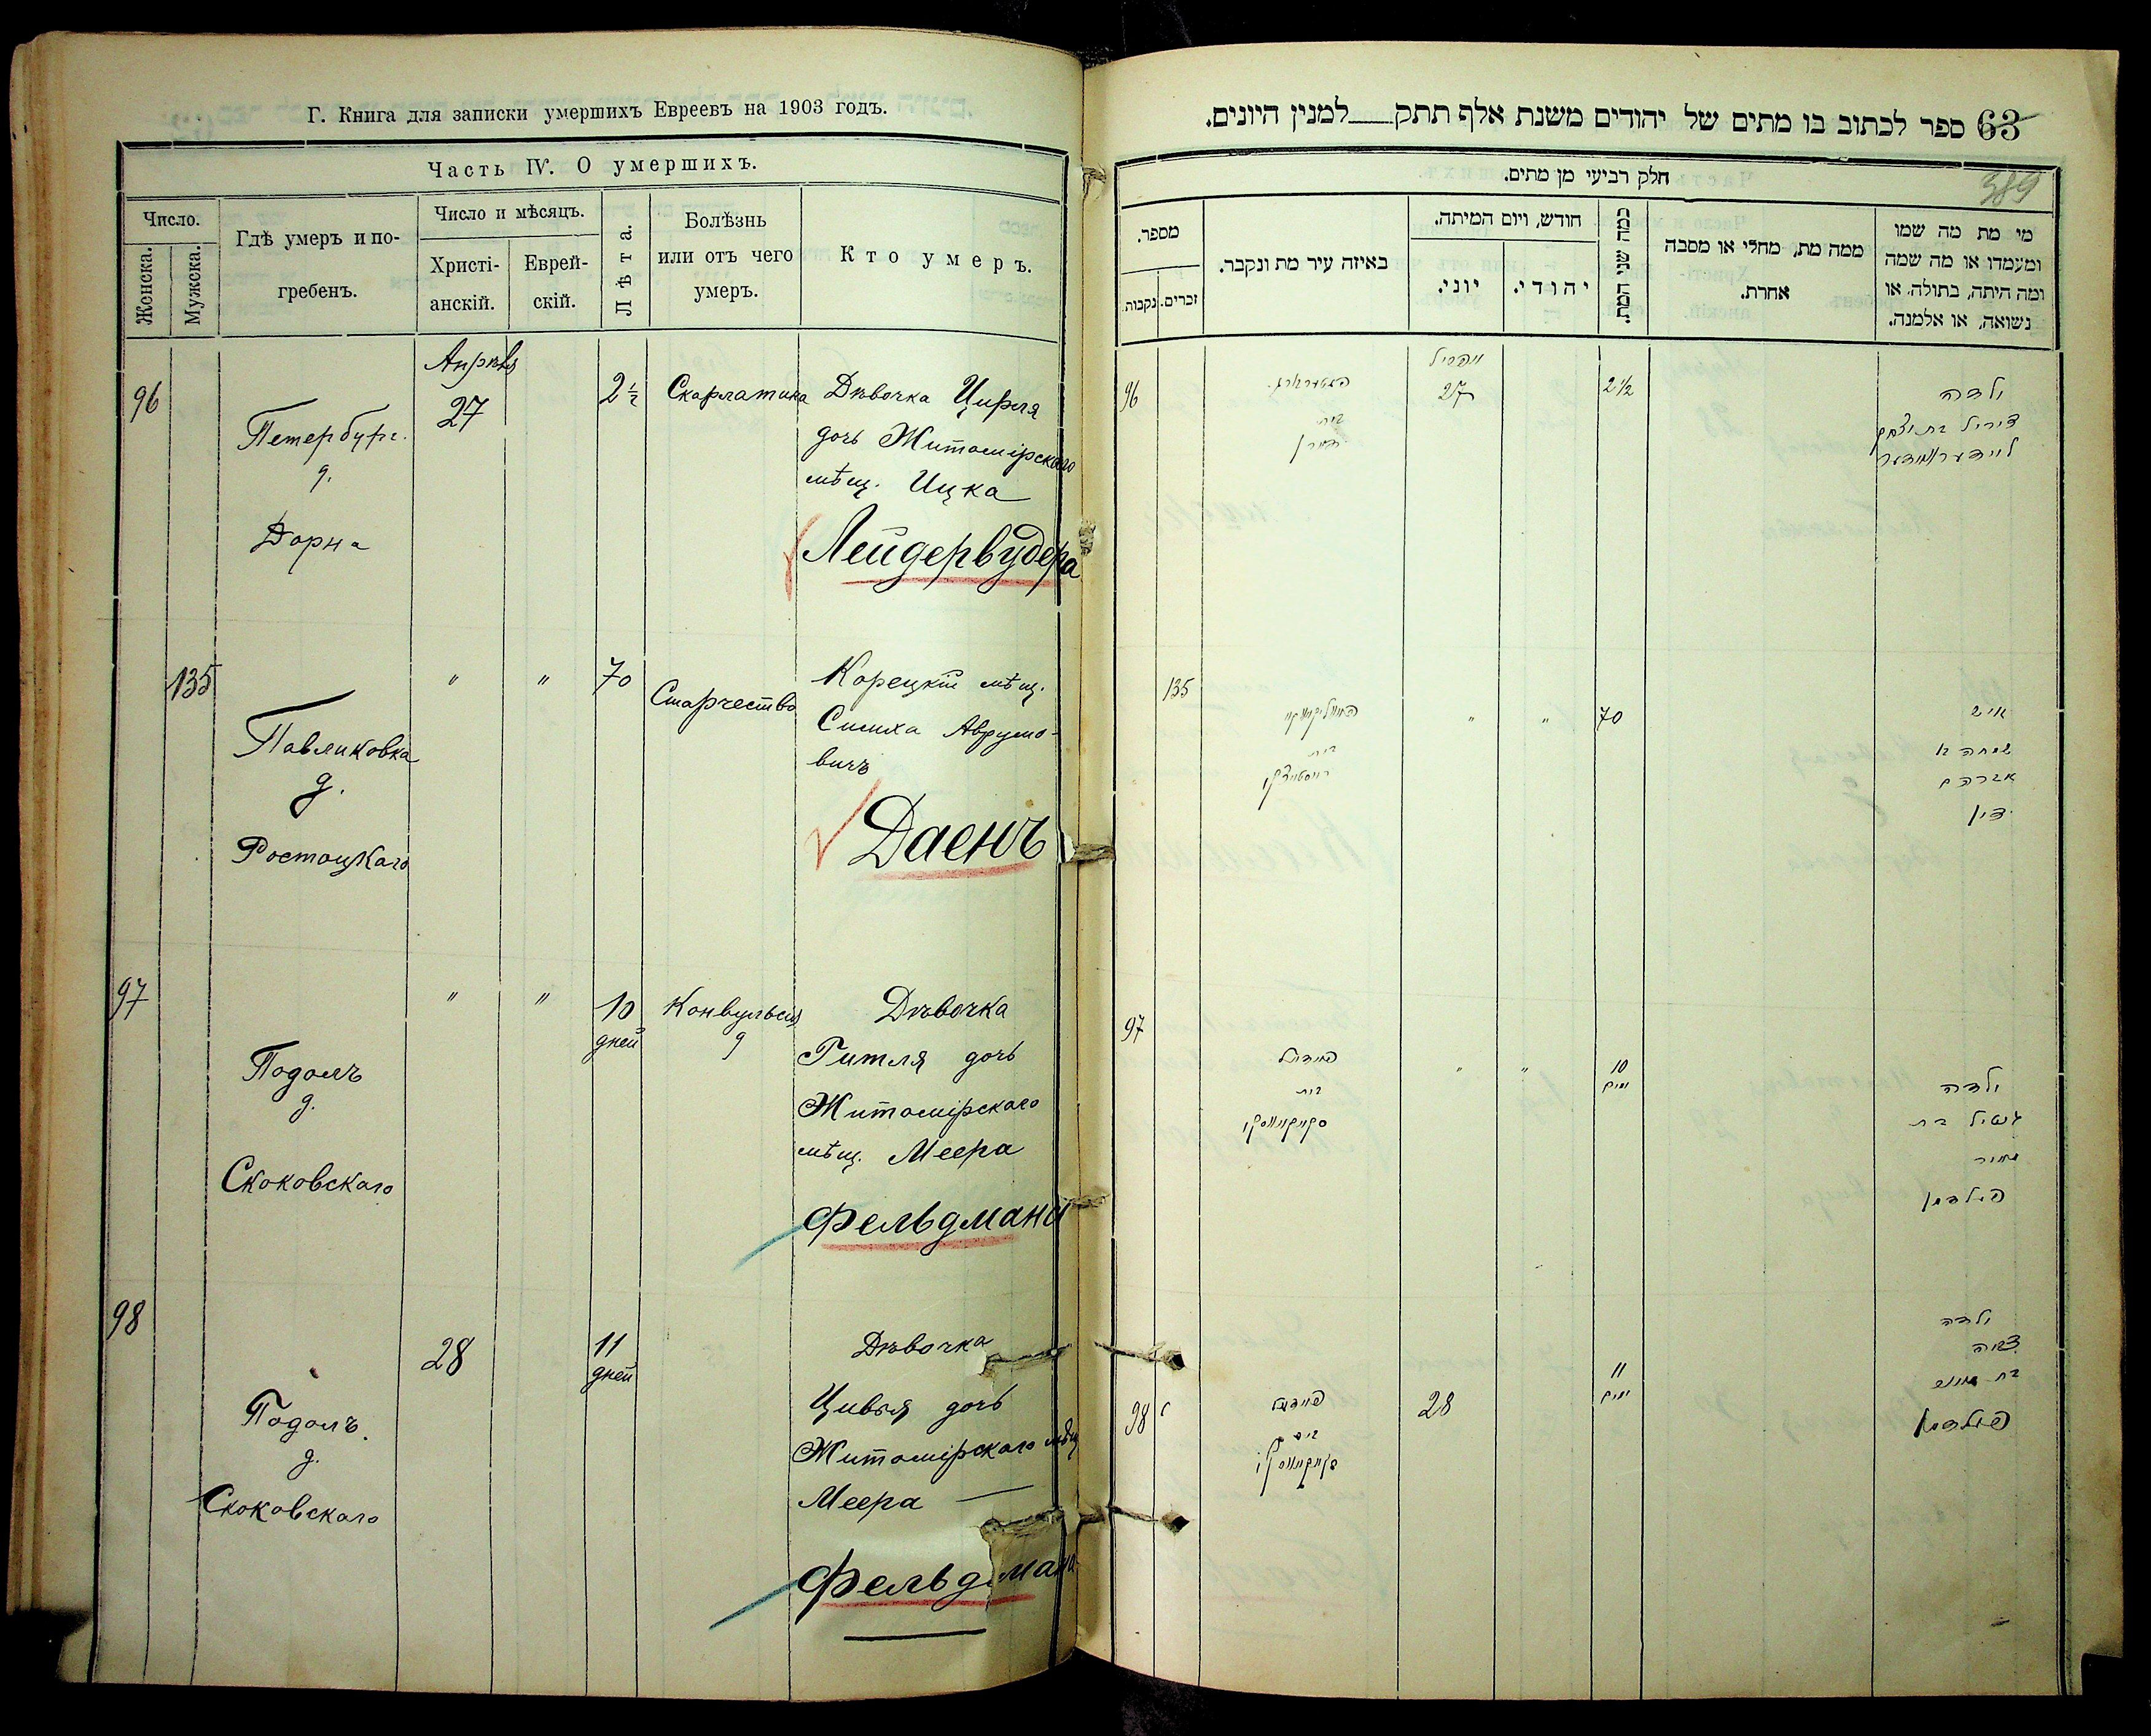 Г. Книга для записки умершихъ Евреевъ на 1903 годъ.
Часть IV. О умершихъ.
Число.
Женска.
Мужска.
Гдѣ умеръ и по-
гребенъ.
Число и мѣсяцъ.
Христі-
анскій.
Еврей-
скій.
Лѣта.
Болѣзнь
или отъ чего
умеръ.
Кто умеръ.
96
Петербург.
д.
Дорна
Апрѣля
27
2½
Скарлатина
Дѣвочка Цирля
дочь Житомірскаго
мѣщ. Ицка
Лейдервудера
135
Павликовка
д.
Ростоцкаго
"
"
70
Старчество
Корецкій мѣщ.
Симха Аврумо-
вичъ
Даенъ
97
Подолъ
д.
Скоковскаго
"
"
10
дней
Конвульсія
Дѣвочка
Гитля дочь
Житомірскаго
мѣщ. Меера
Фельдмана
98
Подолъ.
д.
Скоковскаго
28
11
дней
Дѣвочка
Цивья дочь
Житомірскаго мѣщ
Меера —
Фельдмана
63 ספר לכתוב בו מתים של יהודים משנת אלף תתק למנין היונים.
389
חלק רביעי מן מתים.
מי מת מה שמו
ומעמדו או מה שמה
ומה היתה, בתולה, או
נשואה, או אלמנה.
ממה מת, מחלי או מסבה
אחרת.
כמה שני המת.
חודש, ויום המיתה.
יהודי.
יוני.
באיזה עיר מת ונקבר.
מספר.
זכרים.
נקבות.
ילדה
2½
27
בית
96
איש
שמחה ב
אברהם
דיין
70
"
"
בית
135
ילדה
גיטיל בת
מאיר
פעלדמן
10
ימים
"
"
בית
97
ילדה
צביה
בת מאיר
פעלדמן
11
ימים
28
בית
98